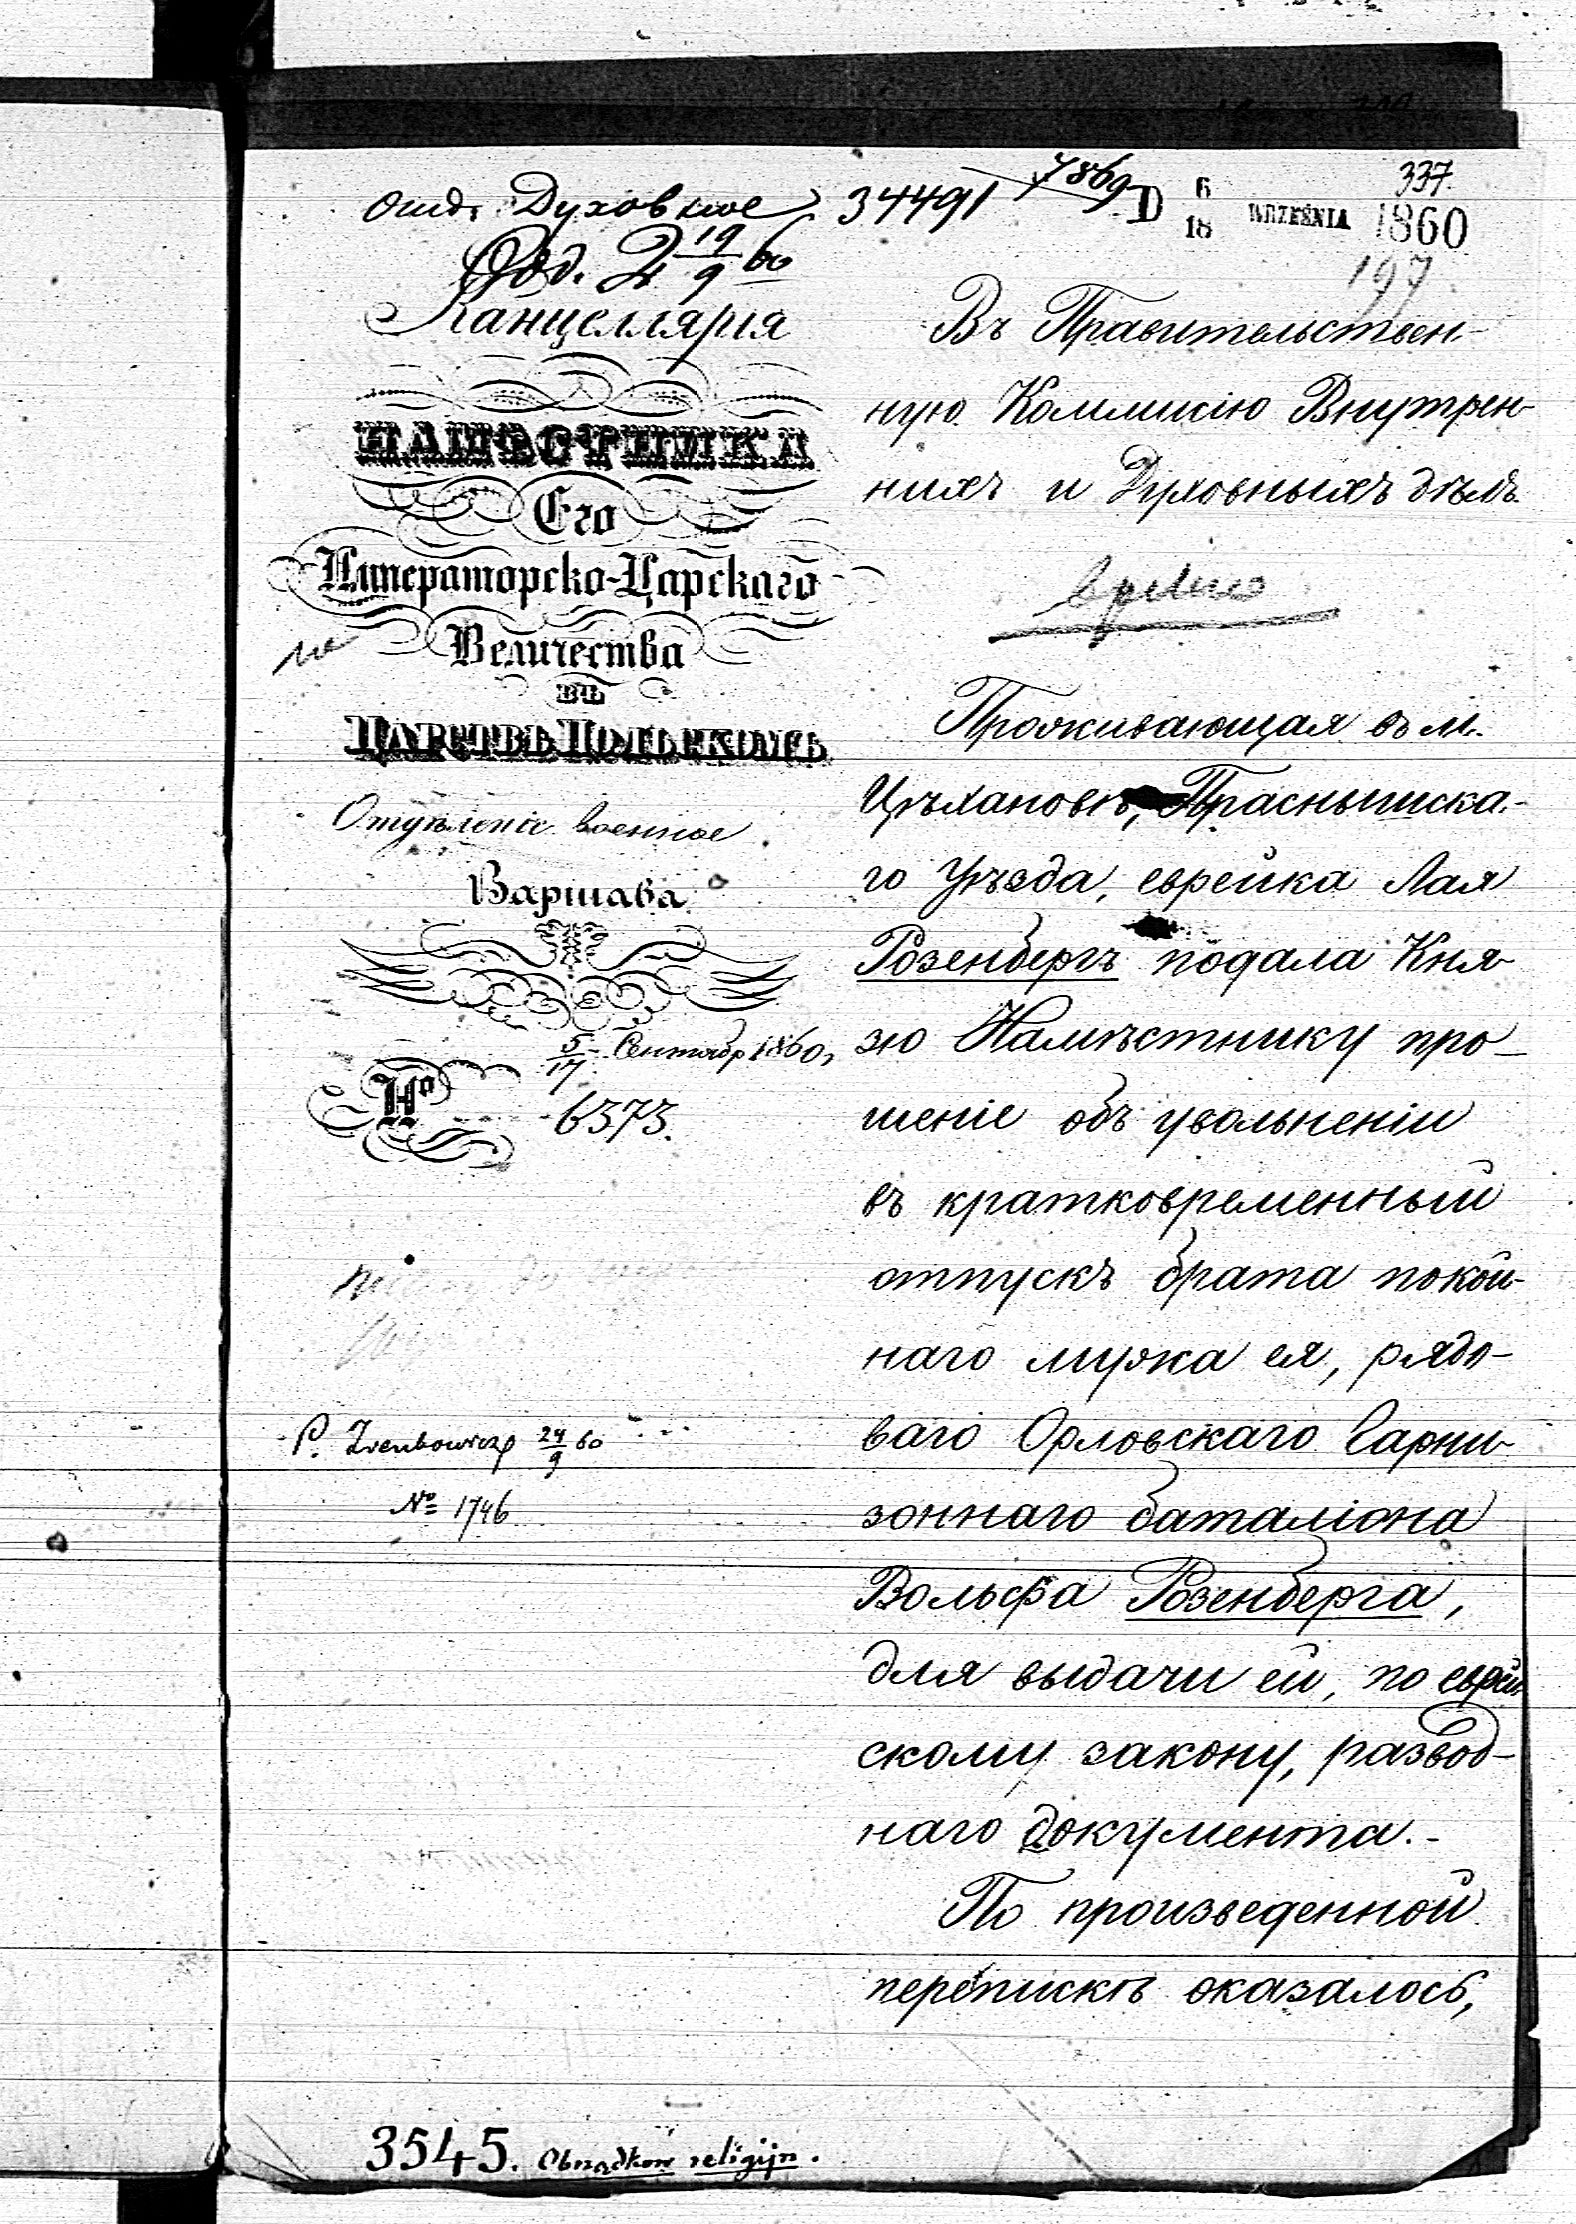 отд. Духовное 34491 7869 D 6/18 WRZEŚNIA 1860
337.
197
Odd. 2 19/9 60
Канцеллярія
НАМѢСТНИКА
Его
Императорско-Царскаго
Величества
ВЪ
ЦАРСТВѢ ПОЛЬСКОМЪ
Отдѣленіе военное
Варшава
5/17 Сентябр 1860,
№ 6373.
P. Zwenbowicz 24/9 60
№ 1746
Въ Правительствен-
ную Коммисію Внутрен-
нихъ и Духовныхъ дѣлъ.
Проживающая въ м.
Цѣхановѣ, Праснышска-
го Уѣзда, еврейка Лая
Розенбергъ подала Кня-
зю Намѣстнику про-
шеніе объ увольненіи
въ кратковременный
отпускъ брата покой-
наго мужа ея, рядо-
ваго Орловскаго Гарни-
зоннаго баталіона
Вольфа Розенберга,
для выдачи ей, по еврей-
скому закону, развод-
наго документа.-
По произведенной
перепискѣ оказалось,
3545. Obrządków religijn.